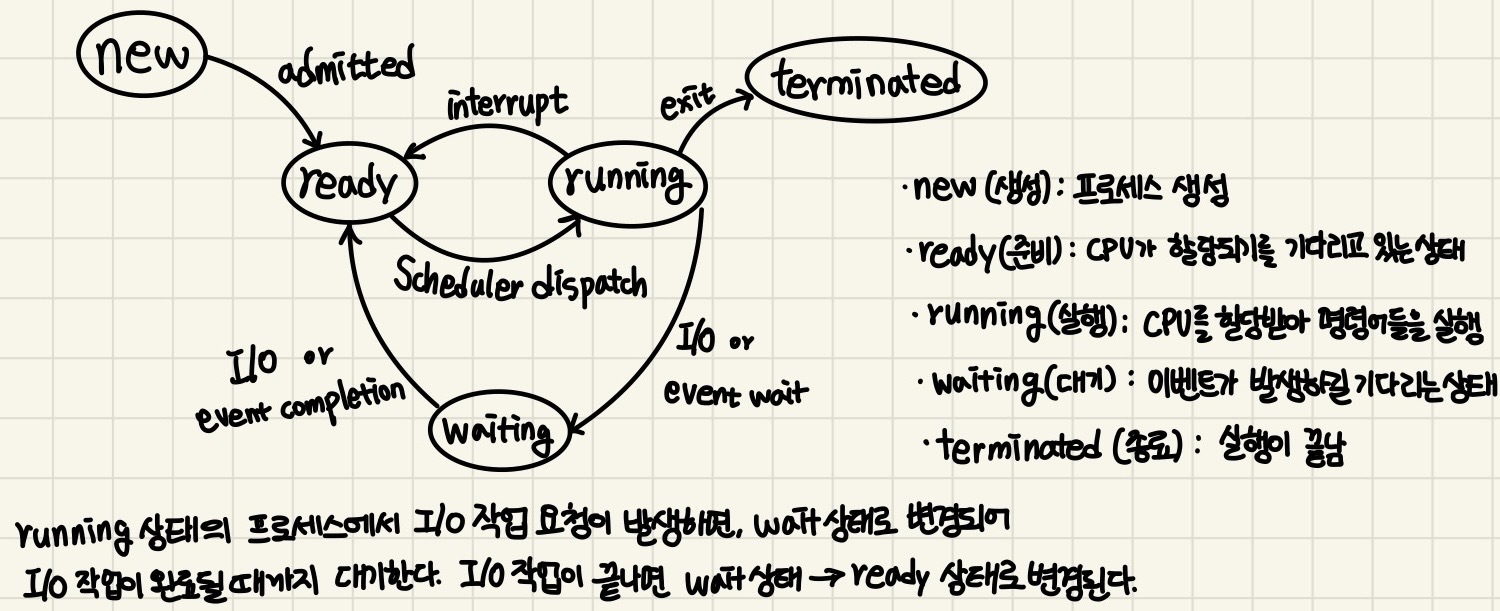 new
admitted
interrupt
exit
terminated
ready
running
Scheduler dispatch
I/O or
event completion
I/O or
event wait
waiting
· new (생성) : 프로세스 생성
· ready (준비) : CPU가 할당되기를 기다리고 있는 상태
· running (실행) : CPU를 할당받아 명령어들을 실행
· waiting (대기) : 이벤트가 발생하길 기다리는 상태
· terminated (종료) : 실행이 끝남
running 상태의 프로세스에서 I/O 작업 요청이 발생하면, wait 상태로 변경되어
I/O 작업이 완료될 때까지 대기한다. I/O 작업이 끝나면 wait 상태 → ready 상태로 변경된다.